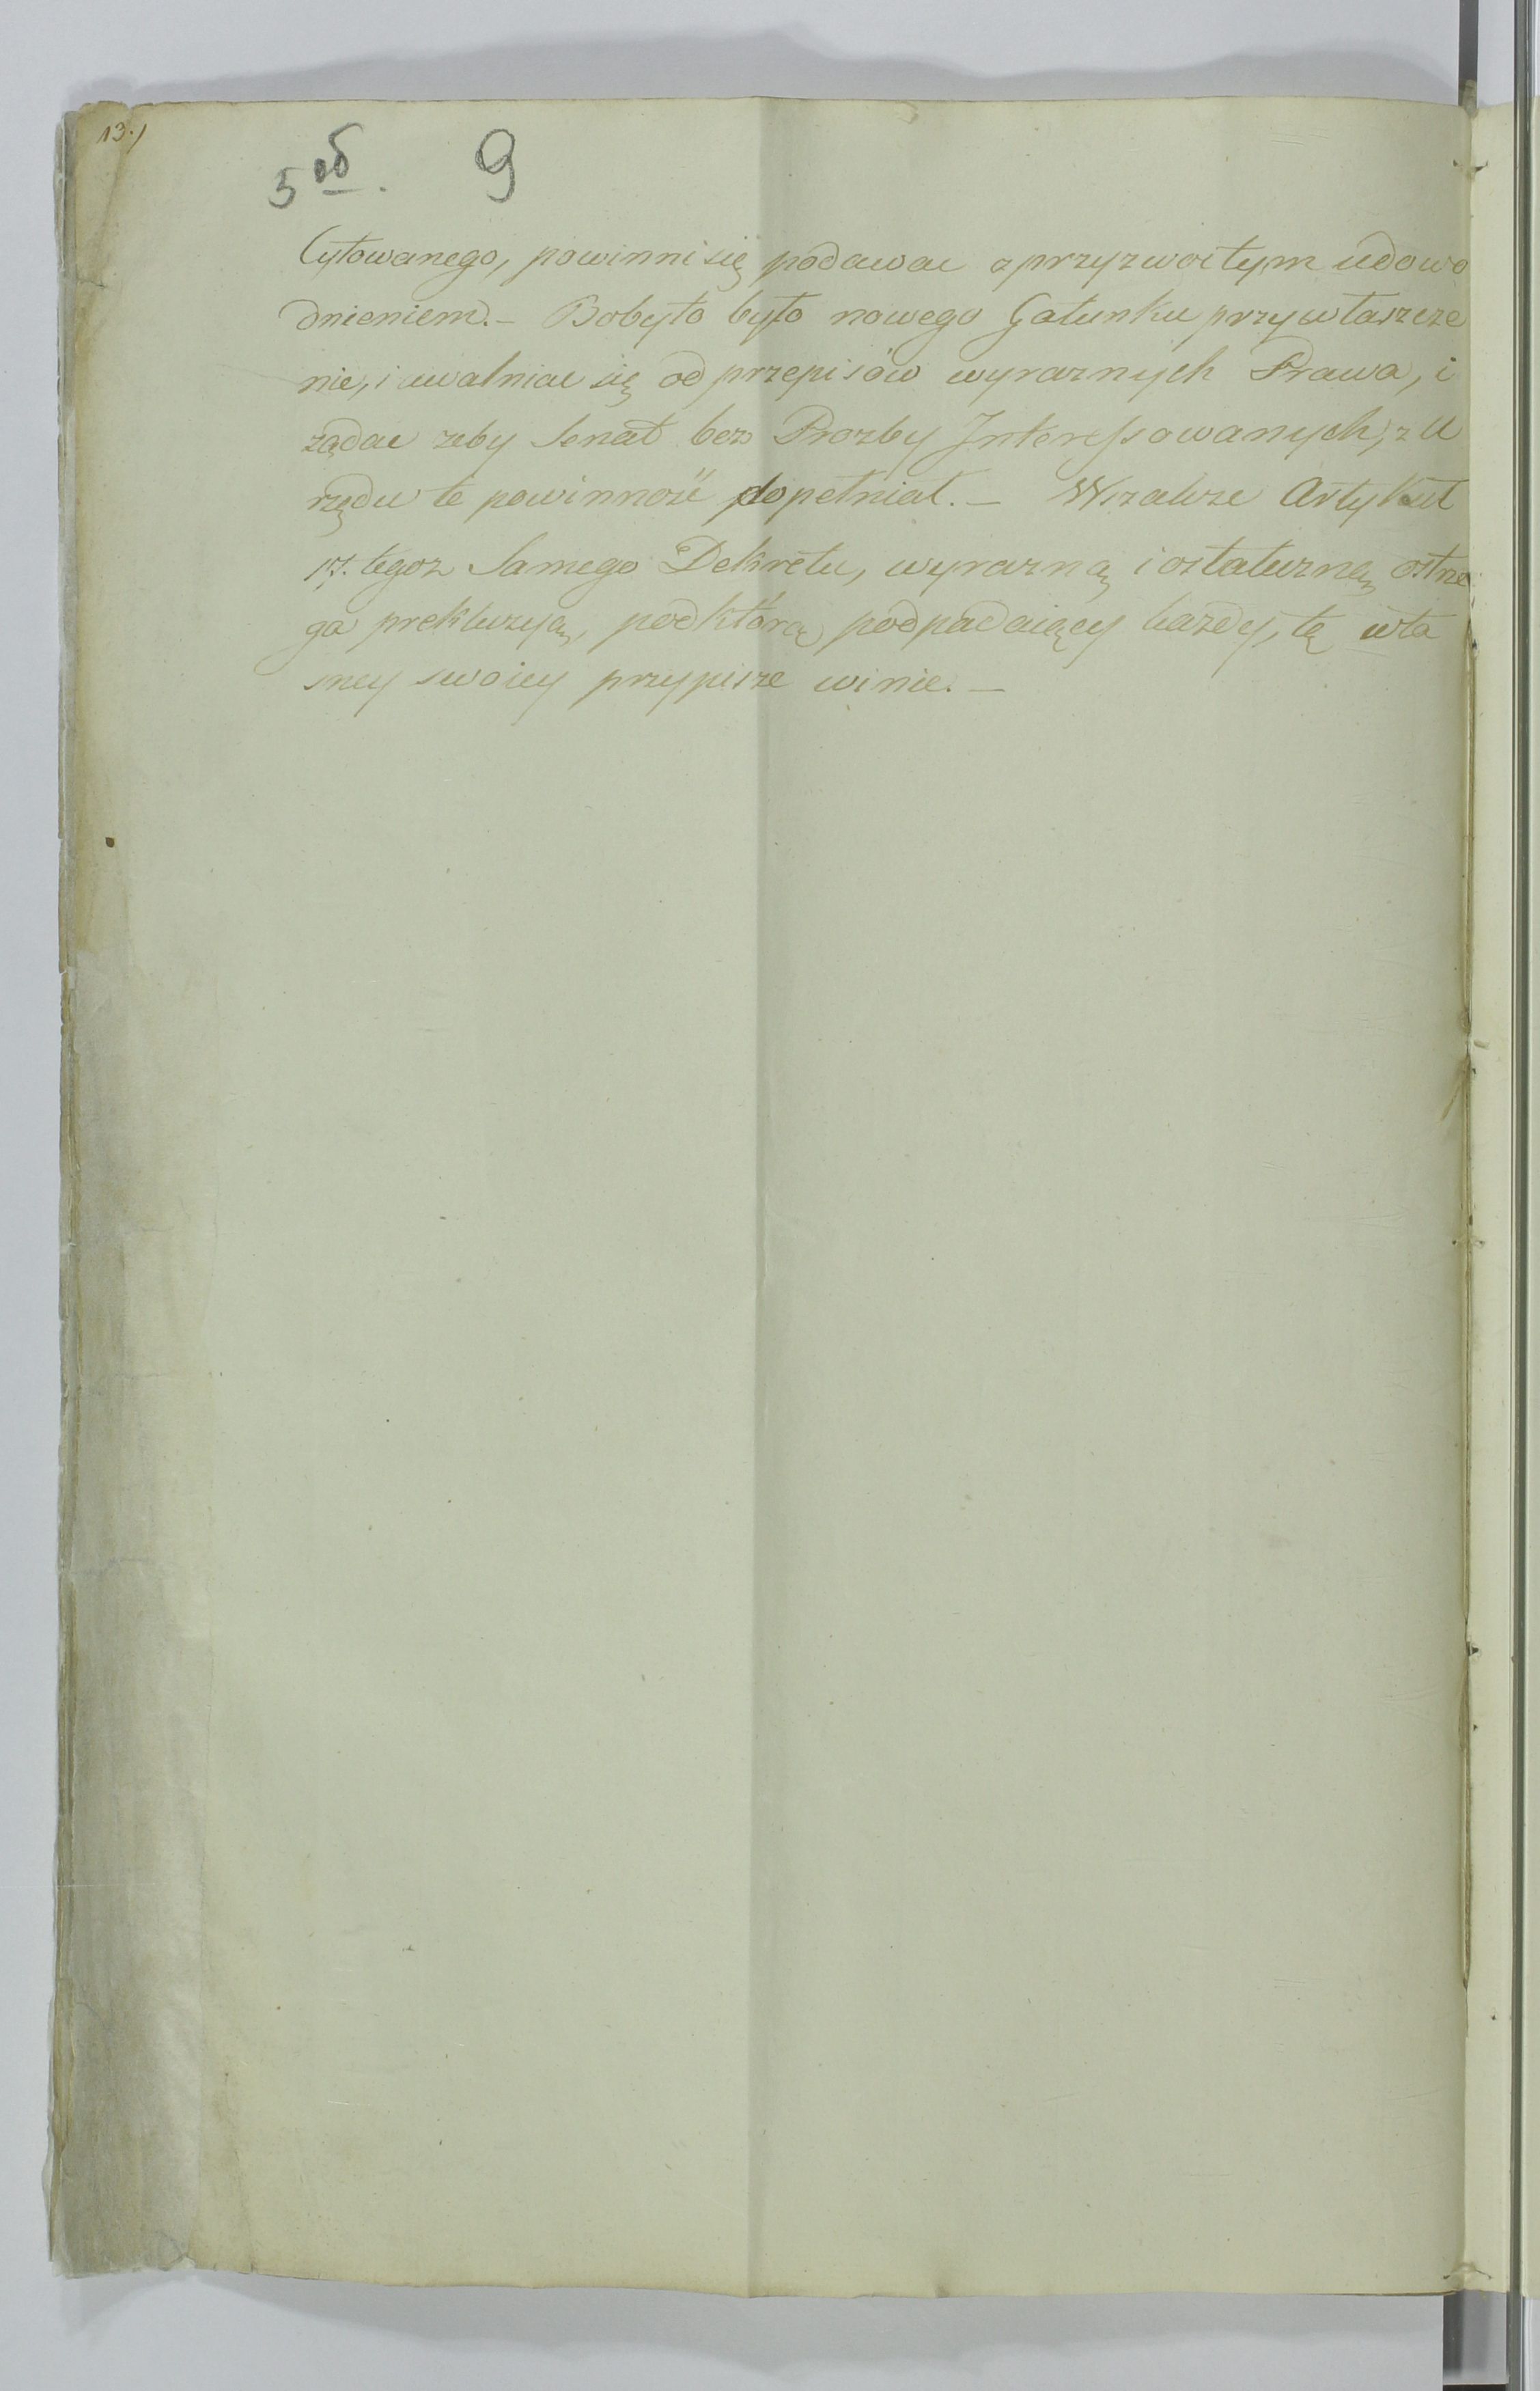 13./
5 об. 9
Cytowanego, powinni się podawac z przyzwoitym udowo
dnieniem. — Bobyto było nowego Gatunku przywłaszcze
nie, i uwalniac się od przepisów wyraznych Prawa, i
ządac zeby Senat bez Prozby Interessowanych, z U
rzędu te powinność dopełniał. — Wszakze Artykuł
17. tegoz Samego Dekretu, wyrazną i ostateczną ostrze
ga prekluzyą, pod którą podpadaiący kazdy, tę wła
sney swoiey przypisze winie. —